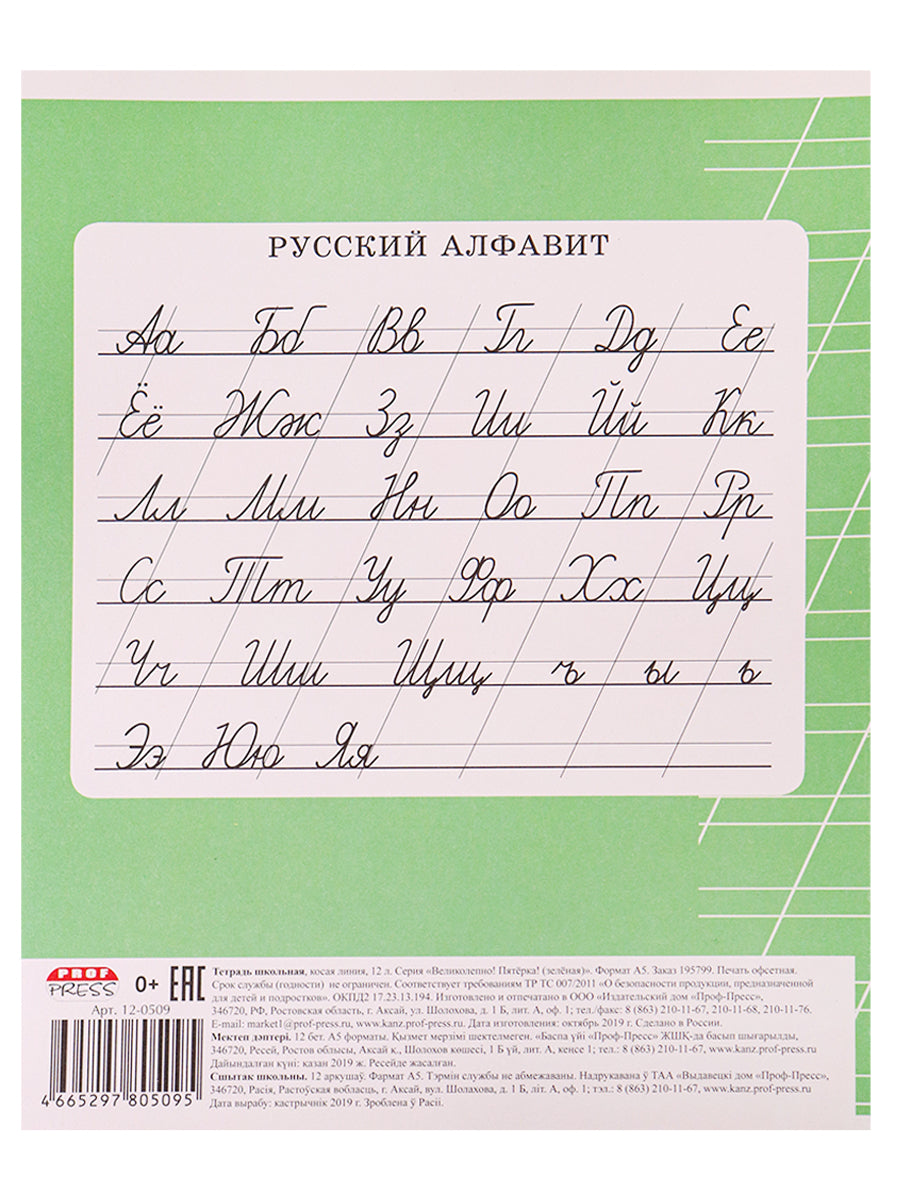 РУССКИЙ АЛФАВИТ
Аа Бб Вв Гг Дд Ее
Ёё Жж Зз Ии Йй Кк
Лл Мм Нн Оо Пп Рр
Сс Тт Уу Фф Хх Цц
Чч Шш Щщ ъ ы ь
Ээ Юю Яя
PROF
PRESS
0+
EAC
Арт. 12-0509
4 665297 805095
Тетрадь школьная, косая линия, 12 л. Серия «Великолепно! Пятёрка! (зелёная)». Формат А5. Заказ 195799. Печать офсетная.
Срок службы (годности) не ограничен. Соответствует требованиям ТР ТС 007/2011 «О безопасности продукции, предназначенной
для детей и подростков». ОКПД2 17.23.13.194. Изготовлено и отпечатано в ООО «Издательский дом «Проф-Пресс»,
346720, РФ, Ростовская область, г. Аксай, ул. Шолохова, д. 1 Б, лит. А, оф. 1; тел./факс: 8 (863) 210-11-67, 210-11-68, 210-11-76.
E-mail: market1@prof-press.ru, www.kanz.prof-press.ru. Дата изготовления: октябрь 2019 г. Сделано в России.
Мектеп дәптері. 12 бет. А5 форматы. Қызмет мерзімі шектелмеген. «Баспа үйі «Проф-Пресс» ЖШҚ-да басып шығарылды,
346720, Ресей, Ростов облысы, Аксай к., Шолохов көшесі, 1 Б үй, лит. А, кеңсе 1; тел.: 8 (863) 210-11-67, www.kanz.prof-press.ru
Дайындалған күні: қазан 2019 ж. Ресейде жасалған.
Сшытак школьны. 12 аркушаў. Фармат А5. Тэрмін службы не абмежаваны. Надрукавана ў ТАА «Выдавецкі дом «Проф-Пресс»,
346720, Расія, Растоўская вобласць, г. Аксай, вул. Шолахава, д. 1 Б, літ. А, оф. 1; тэл.: 8 (863) 210-11-67, www.kanz.prof-press.ru
Дата вырабу: кастрычнік 2019 г. Зроблена ў Расіі.